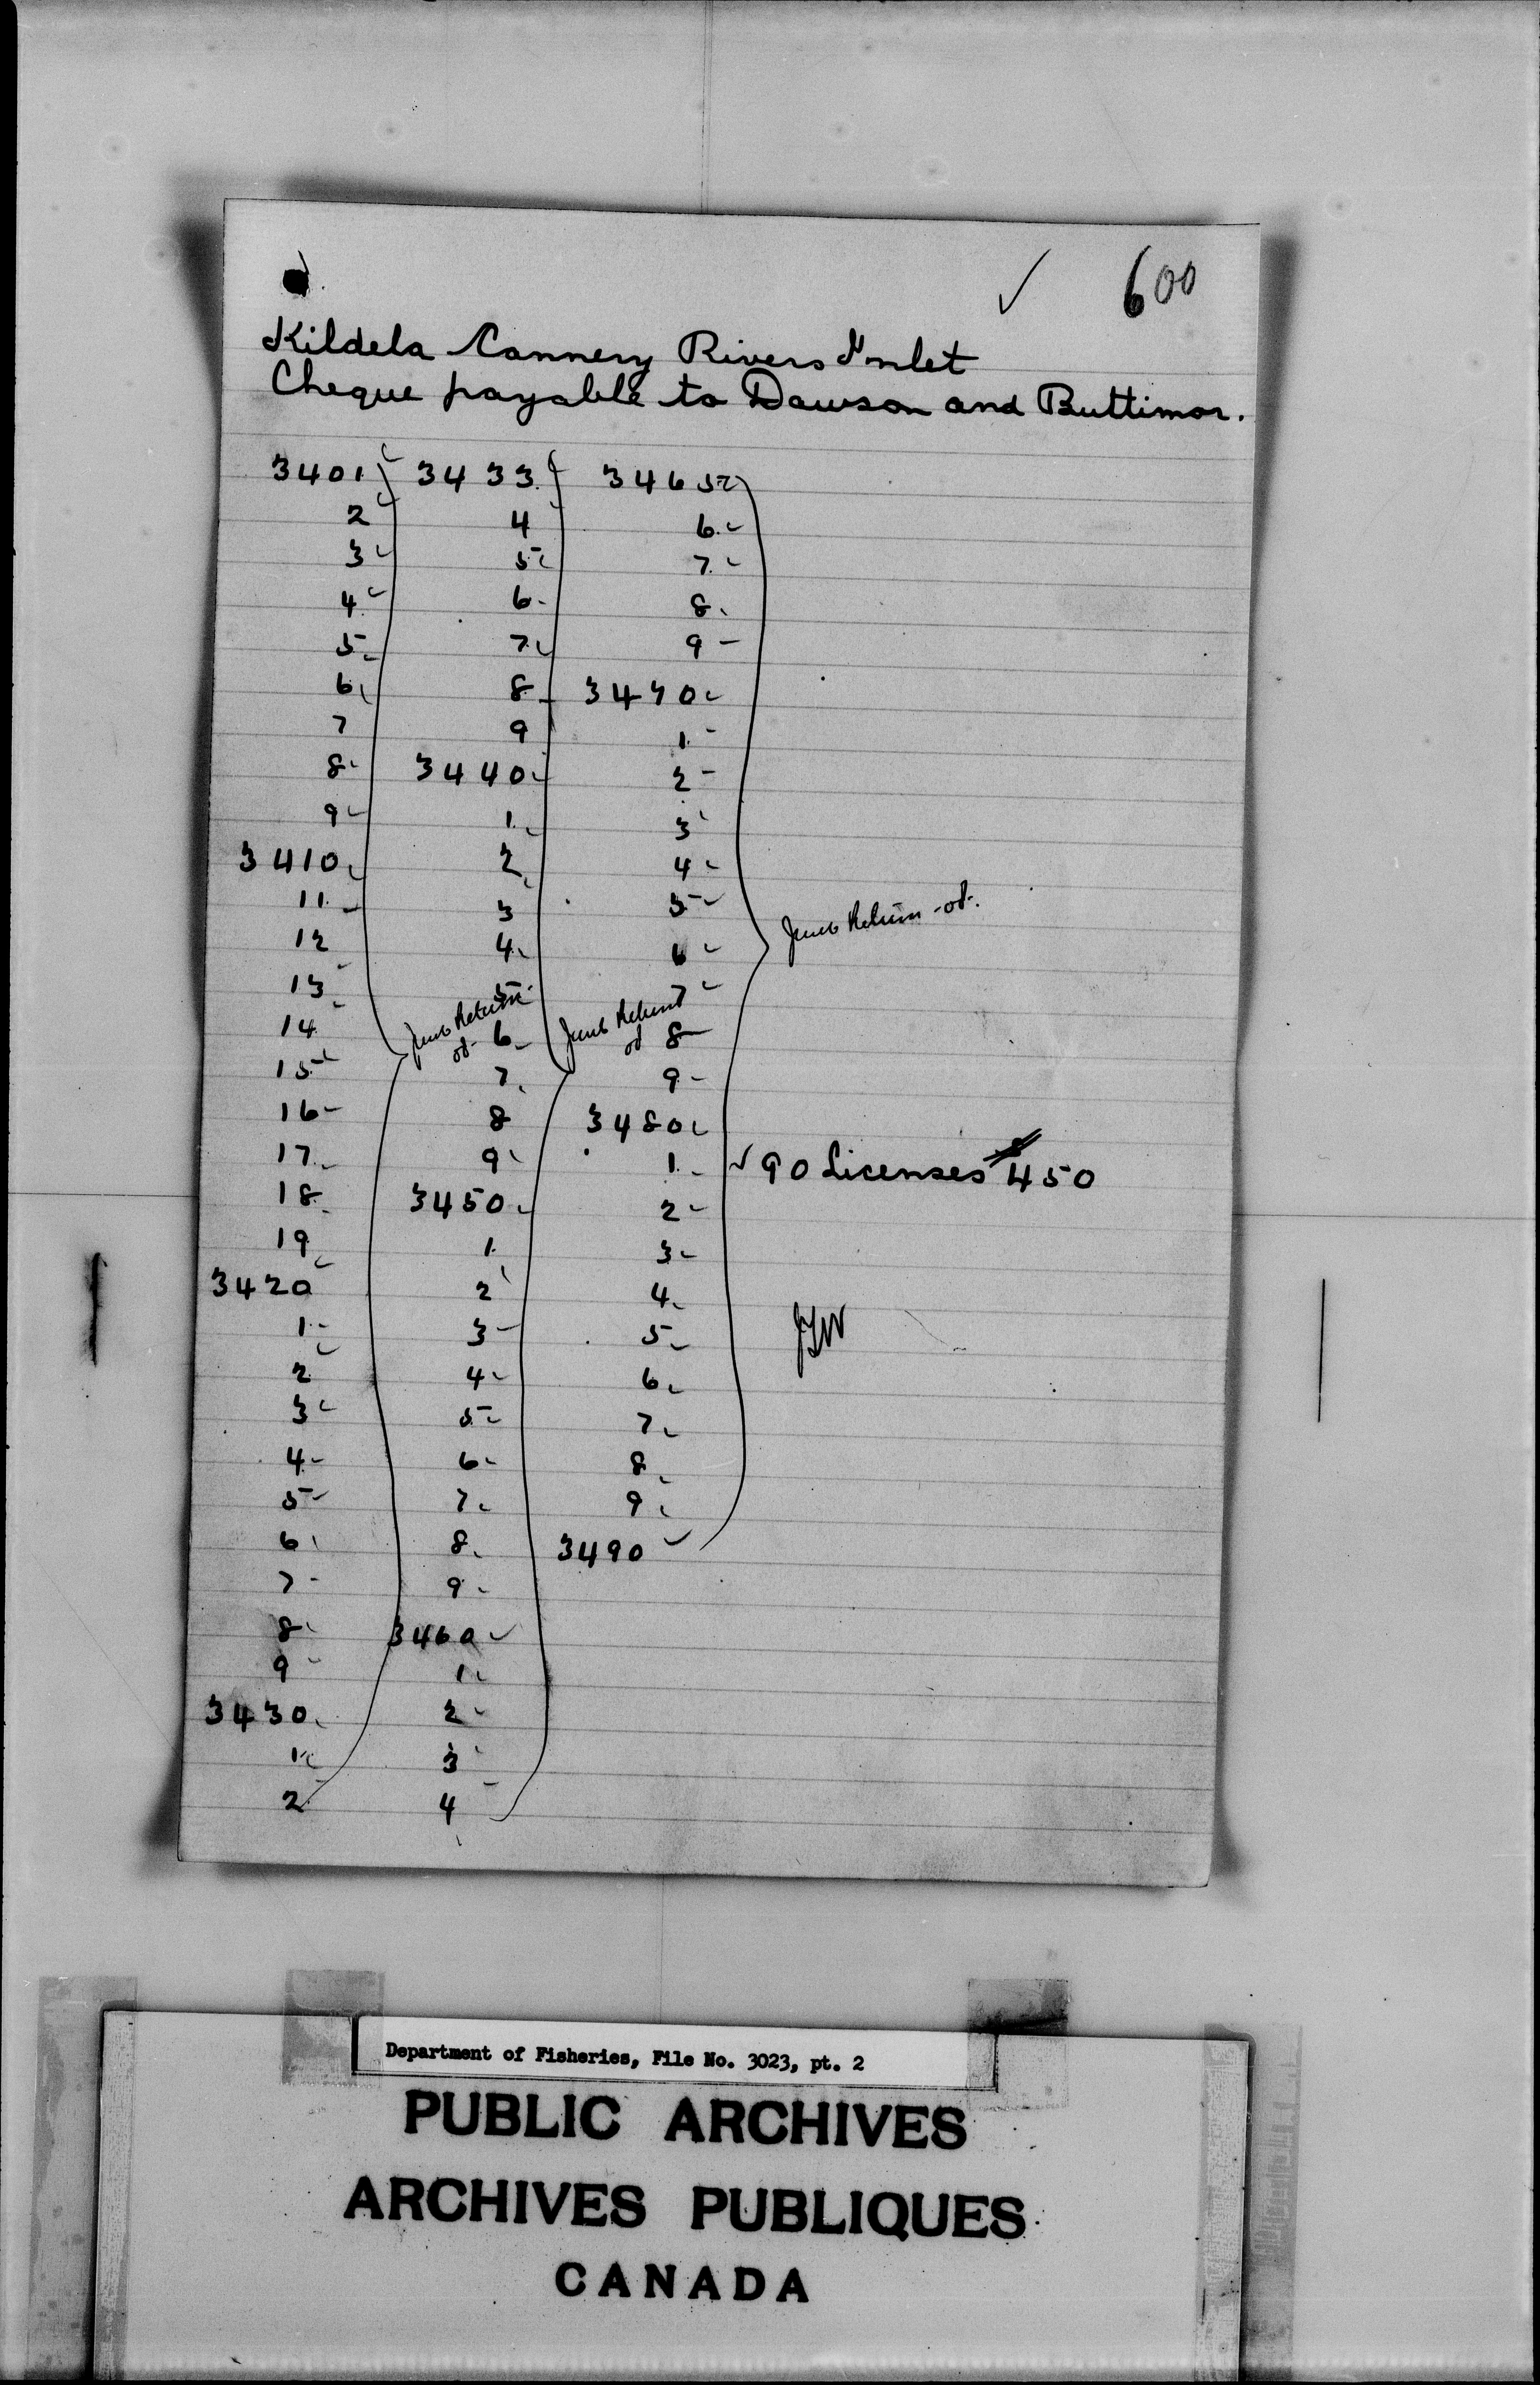 ✓ 600
Kildela Cannery Rivers Inlet
Cheque payable to Dawson and Buttimor.
3401 3433 3465
2 4 6
3 5 7
4 6 8
5 7 9
6 8 3470
7 9 1
8 3440 2
9 1 3
3410 2 4
11 3 5
12 4 6
13 5 7
14 6 8
15 7 9
16 8 3480
17 9 1
18 3450 2
19 1 3
3420 2 4
1 3 5
2 4 6
3 5 7
4 6 8
5 7 9
6 8 3490
7 9
8 3460
9 1
3430 2
1 3
2 4
June Return
June Return
June Return
✓ 90 Licenses $450
Department of Fisheries, File No. 3023, pt. 2
PUBLIC ARCHIVES
ARCHIVES PUBLIQUES
CANADA